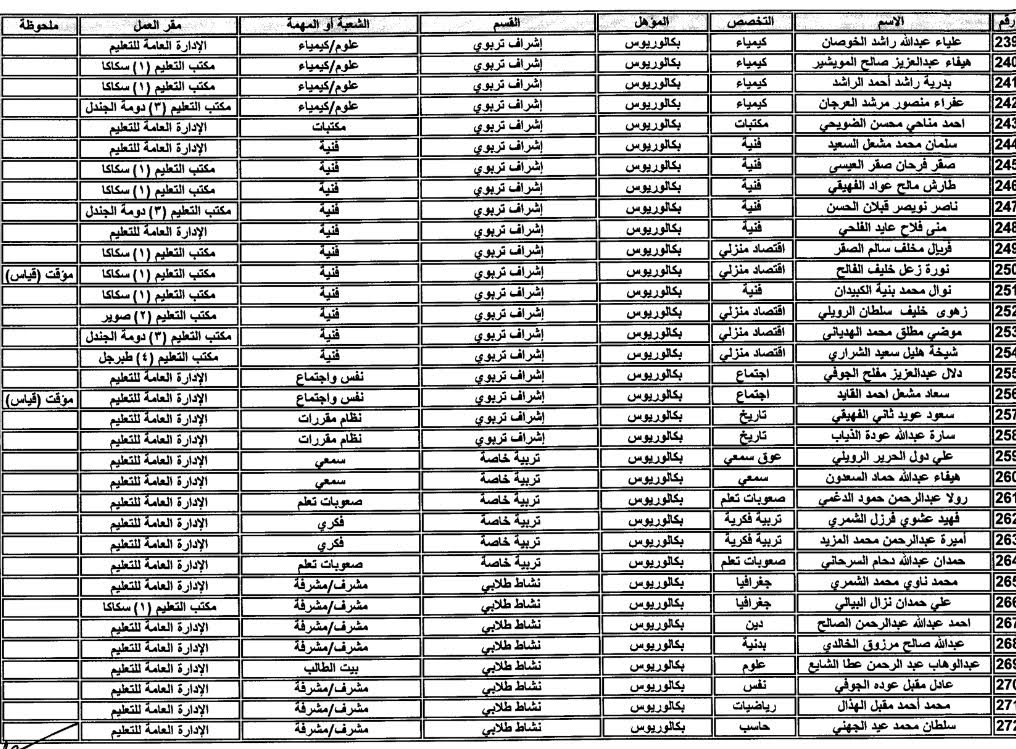 رقم الاسم التخصص المؤهل القسم الشعبة أو المهمة مقر العمل ملحوظة
239 علياء عبدالله راشد الخوصان كيمياء بكالوريوس إشراف تربوي علوم/كيمياء الإدارة العامة للتعليم
240 هيفاء عبدالعزيز صالح المويشير كيمياء بكالوريوس إشراف تربوي علوم/كيمياء مكتب التعليم (١) سكاكا
241 بدرية راشد أحمد الراشد كيمياء بكالوريوس إشراف تربوي علوم/كيمياء مكتب التعليم (١) سكاكا
242 عفراء منصور مرشد العرجان كيمياء بكالوريوس إشراف تربوي علوم/كيمياء مكتب التعليم (٣) دومة الجندل
243 احمد مناحي محسن الضويحي مكتبات بكالوريوس إشراف تربوي مكتبات الإدارة العامة للتعليم
244 سلمان محمد مشعل السعيد فنية بكالوريوس إشراف تربوي فنية الإدارة العامة للتعليم
245 صقر فرحان صقر العيسى فنية بكالوريوس إشراف تربوي فنية مكتب التعليم (١) سكاكا
246 طارش مالح عواد الفهيقي فنية بكالوريوس إشراف تربوي فنية مكتب التعليم (١) سكاكا
247 ناصر نويصر قبلان الحسن فنية بكالوريوس إشراف تربوي فنية مكتب التعليم (٣) دومة الجندل
248 منى فلاح عايد الفلحي فنية بكالوريوس إشراف تربوي فنية الإدارة العامة للتعليم
249 فريال مخلف سالم الصقر اقتصاد منزلي بكالوريوس إشراف تربوي فنية مكتب التعليم (١) سكاكا
250 نورة زعل خليف الفالح اقتصاد منزلي بكالوريوس إشراف تربوي فنية مكتب التعليم (١) سكاكا مؤقت (قياس)
251 نوال محمد بنية الكبيدان فنية بكالوريوس إشراف تربوي فنية مكتب التعليم (١) سكاكا
252 زهوى خليف سلطان الرويلي اقتصاد منزلي بكالوريوس إشراف تربوي فنية مكتب التعليم (٢) صوير
253 موضي مطلق محمد الهدياني اقتصاد منزلي بكالوريوس إشراف تربوي فنية مكتب التعليم (٣) دومة الجندل
254 شيخة هليل سعيد الشراري اقتصاد منزلي بكالوريوس إشراف تربوي فنية مكتب التعليم (٤) طبرجل
255 دلال عبدالعزيز مفلح الجوفي اجتماع بكالوريوس إشراف تربوي نفس واجتماع الإدارة العامة للتعليم
256 سعاد مشعل احمد القايد اجتماع بكالوريوس إشراف تربوي نفس واجتماع الإدارة العامة للتعليم مؤقت (قياس)
257 سعود عويد ثاني الفهيقي تاريخ بكالوريوس إشراف تربوي نظام مقررات الإدارة العامة للتعليم
258 سارة عبدالله عودة الذياب تاريخ بكالوريوس إشراف تربوي نظام مقررات الإدارة العامة للتعليم
259 علي دول الحرير الرويلي عوق سمعي بكالوريوس تربية خاصة سمعي الإدارة العامة للتعليم
260 هيفاء عبدالله حماد السعدون سمعي بكالوريوس تربية خاصة سمعي الإدارة العامة للتعليم
261 رولا عبدالرحمن حمود الدغمي صعوبات تعلم بكالوريوس تربية خاصة صعوبات تعلم الإدارة العامة للتعليم
262 فهيد عشوي فرزل الشمري تربية فكرية بكالوريوس تربية خاصة فكري الإدارة العامة للتعليم
263 أميرة عبدالرحمن محمد المزيد تربية فكرية بكالوريوس تربية خاصة فكري الإدارة العامة للتعليم
264 حمدان عبدالله دحام السرحاني صعوبات تعلم بكالوريوس تربية خاصة صعوبات تعلم الإدارة العامة للتعليم
265 محمد ناوي محمد الشمري جغرافيا بكالوريوس نشاط طلابي مشرف/مشرفة الإدارة العامة للتعليم
266 علي حمدان نزال البيالي جغرافيا بكالوريوس نشاط طلابي مشرف/مشرفة مكتب التعليم (١) سكاكا
267 احمد عبدالله عبدالرحمن الصالح دين بكالوريوس نشاط طلابي مشرف/مشرفة الإدارة العامة للتعليم
268 عبدالله صالح مرزوق الخالدي بدنية بكالوريوس نشاط طلابي مشرف/مشرفة الإدارة العامة للتعليم
269 عبدالوهاب عبد الرحمن عطا الشايع علوم بكالوريوس نشاط طلابي بيت الطالب الإدارة العامة للتعليم
270 عادل مقبل عوده الجوفي نفس بكالوريوس نشاط طلابي مشرف/مشرفة الإدارة العامة للتعليم
271 محمد أحمد مقبل الهذال رياضيات بكالوريوس نشاط طلابي مشرف/مشرفة الإدارة العامة للتعليم
272 سلطان محمد عيد الجهني حاسب بكالوريوس نشاط طلابي مشرف/مشرفة الإدارة العامة للتعليم